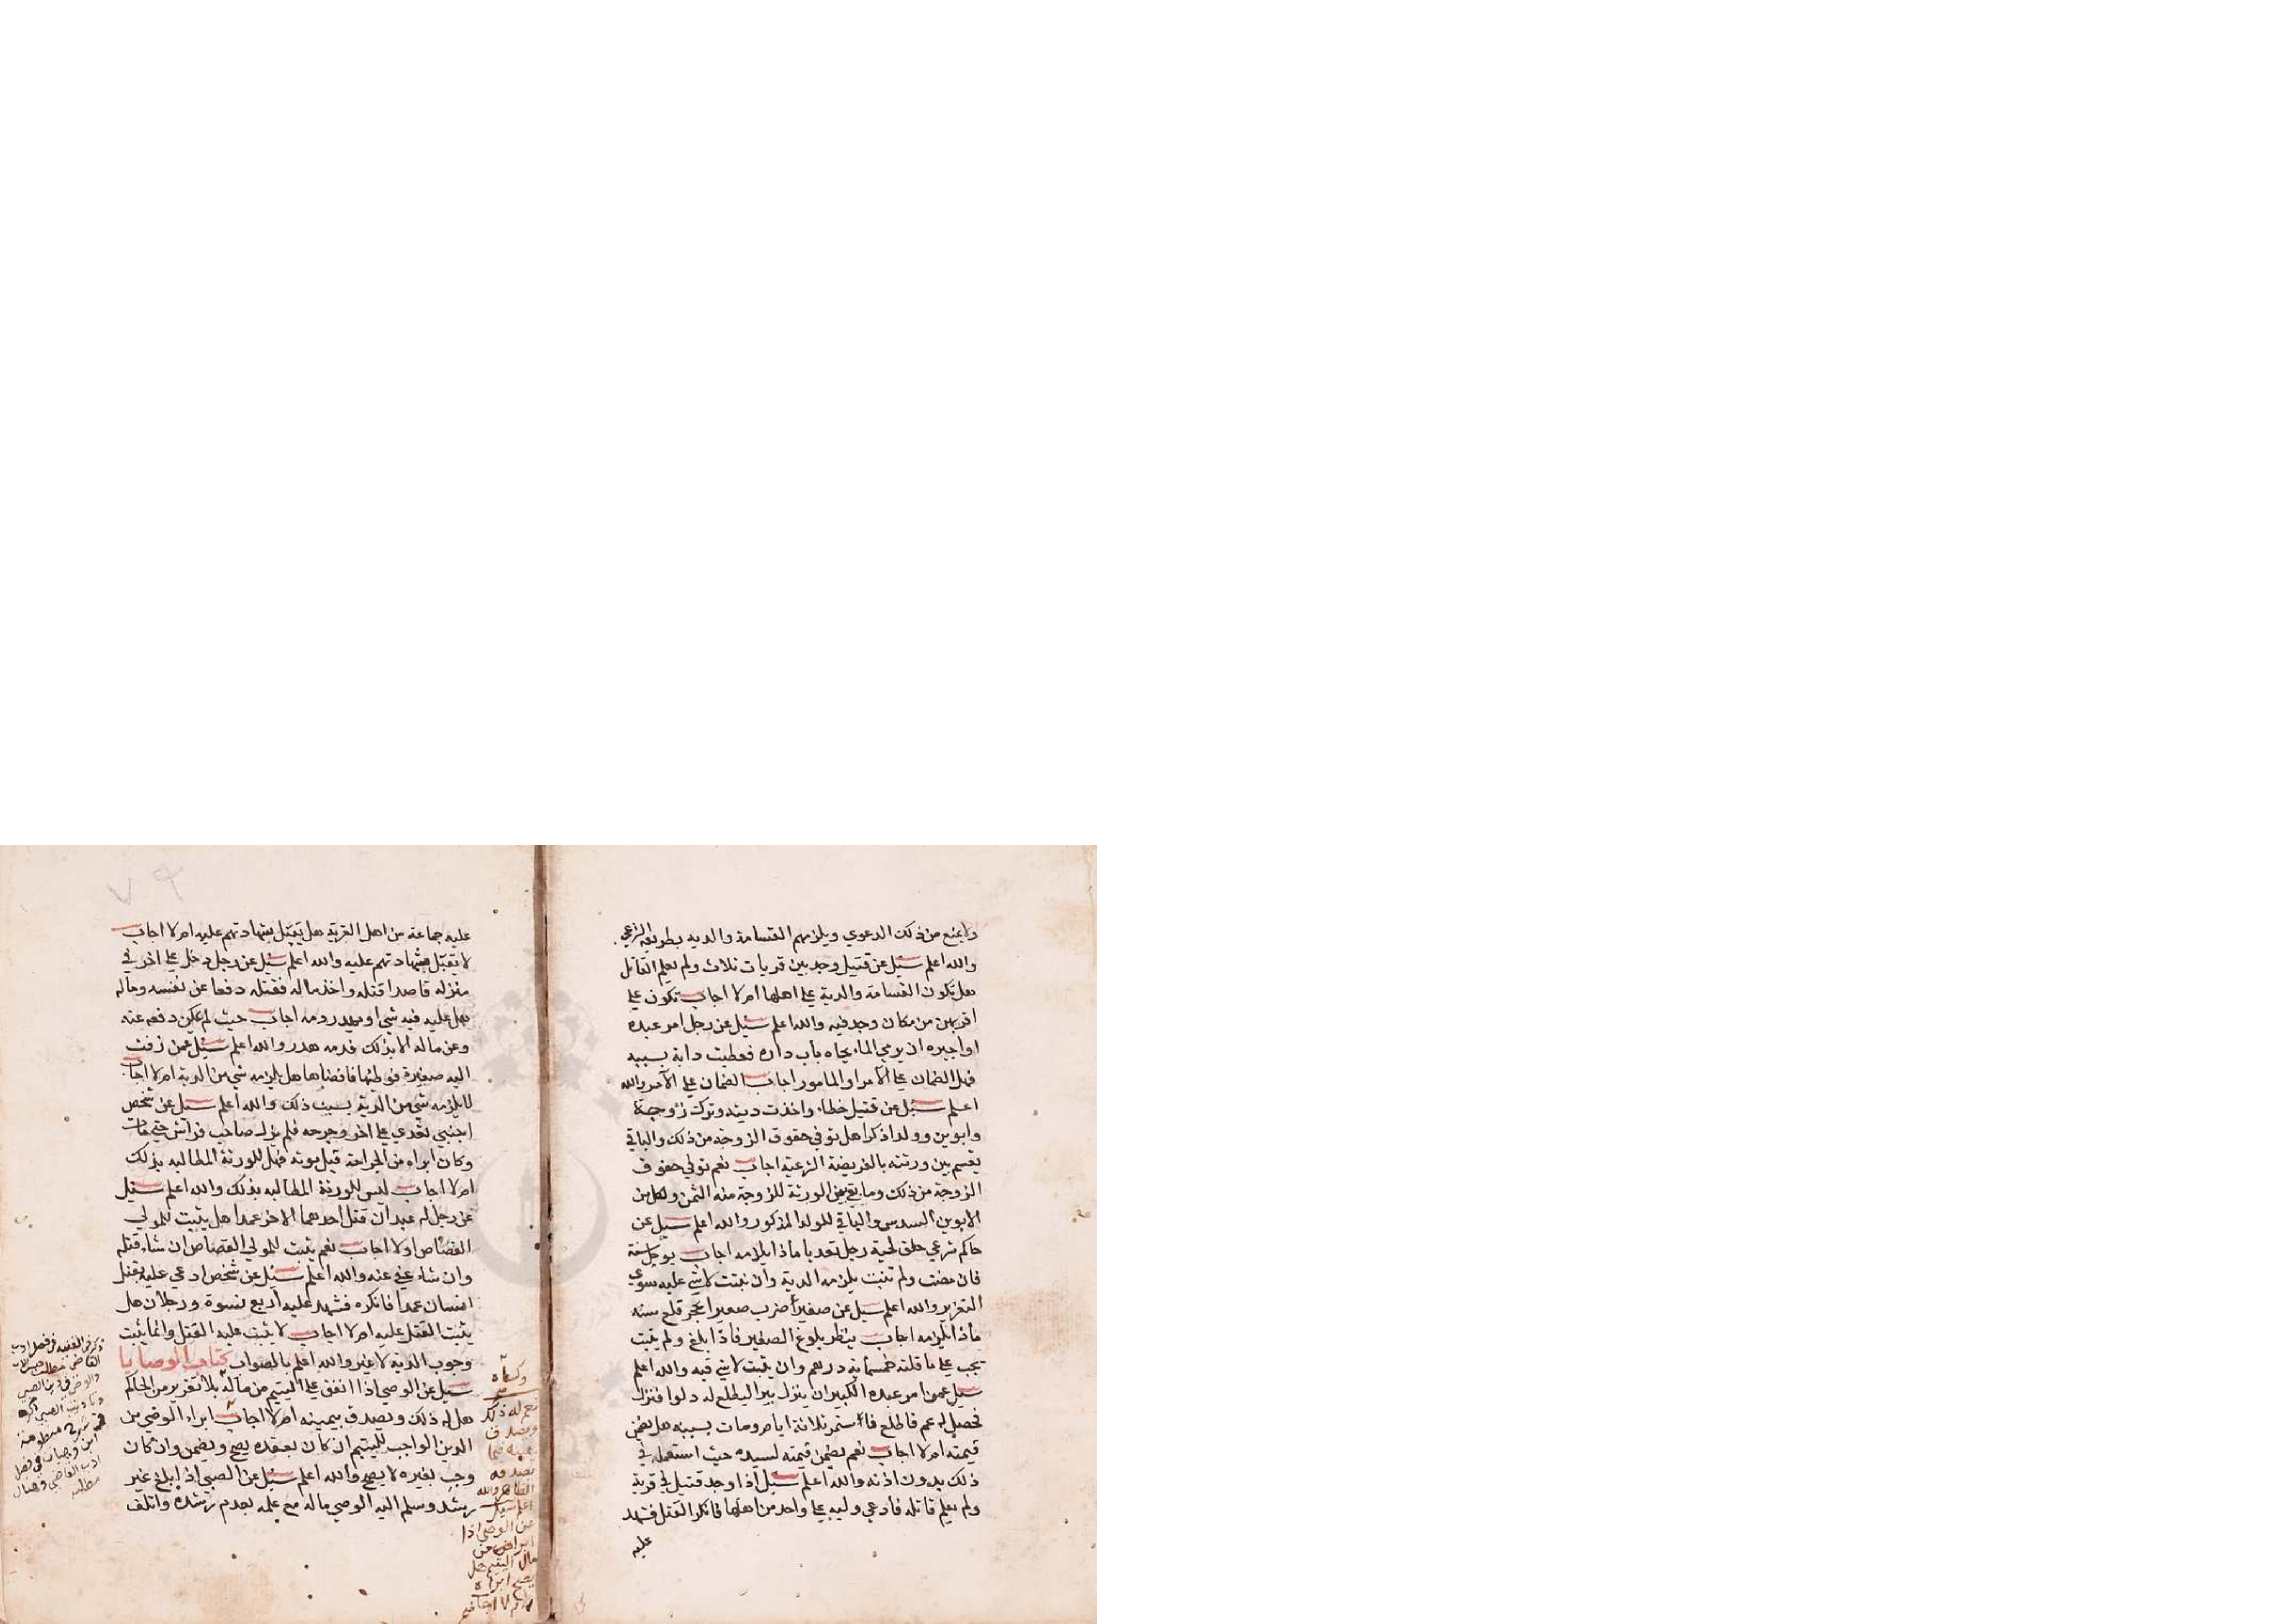 ولا يمنع من ذلك الدعوي ويلزمهم القسامة والديه بطريقه الشرعي
والله اعلم سيل عن قتيل وجد بين قريات ثلاث ولم يعلم القاتل
هل تكون القسامة والدية علي اهلها ام لا اجاب تكون علي
اقربهن من مكان وجد فيه والله اعلم سيل عن رجل امر عبده
او اجيره ان يرمي الماء تجاه باب داره فعطبت دابة بسببه
فهل الضمان علي الآمر او المامور اجاب الضمان علي الآمر والله
اعلم سيل عن قتيل خطاء واخذت ديته وترك زوجة
وابوين وولدا ذكرا هل توفي حقوق الزوجة من ذلك والباقي
يقسم بين ورثته بالفريضة الشرعية اجاب نعم توفي حقوق
الزوجة من ذلك وما بقي بين الورثة للزوجة منه الثمن ولكل من
الابوين السدس والباقي للولد المذكور والله اعلم سيل عن
حاكم شرعي حلق لحية رجل تعديا ماذا يلزمه اجاب يوجل سنة
فان مضت ولم تنبت يلزمه الدية وان نبتت لا شي عليه سوي
التعزير والله اعلم سيل عن صغير ضرب صغيرا بحجر قلع سنه
ماذا يلزمه اجاب ينتظر بلوغ الصغير فاذا بلغ ولم ينبت
يجب علي عاقلته خمسماية درهم وان ينبت لا شي فيه والله اعلم
سيل عمن امر عبده الكبير ان ينزل بيرا ليطلع له دلوا فنزل
فحصل له غم فاطلع فاستمر ثلاثة ايام ومات بسببه هل يضمن
قيمته ام لا اجاب نعم يضمن قيمته لسيده حيث استعمله في
ذلك بدون اذنه والله اعلم سيل اذا وجد قتيل في قرية
ولم يعلم قاتله فادعي وليه علي واحد من اهلها فانكر القتل فشهد
عليه
عليه جماعة من اهل القرية هل تقبل شهادتهم عليه ام لا اجاب
لا تقبل شهادتهم عليه والله اعلم سيل عن رجل دخل علي اخر في
منزله قاصدا قتله واخذ ماله فقتله دفعا عن نفسه وماله
هل عليه فيه شي او يهدر دمه اجاب حيث لم يمكن دفعه عنه
وعن ماله الا بذلك فدمه هدر والله اعلم سيل عمن زفت
اليه صغيرة فوطيها فافضاها هل يلزمه شي من الدية ام لا اجاب
لا يلزمه شي من الدية بسبب ذلك والله اعلم سيل عن شخص
اجنبي تعدي علي اخر وجرحه فلم يزل صاحب فراش حتي مات
وكان ابراه من الجراحة قبل موته فهل للورثة المطالبه بذلك
ام لا اجاب ليس للورثة المطالبه بذلك والله اعلم سيل
عن رجل له عبدان قتل احدهما الاخر عمدا هل يثبت للمولي
القصاص اولا اجاب نعم يثبت للمولي القصاص ان شاء قتله
وان شاء عفي عنه والله اعلم سيل عن شخص ادعي عليه بقتل
انسان عمدا فانكره فشهد عليه اربع نسوة ورجلان هل
يثبت القتل عليه ام لا اجاب لا يثبت عليه القتل وانما يثبت
وجوب الدية لا غير والله اعلم بالصواب كتاب الوصايا
سيل عن الوصي اذا انفق علي اليتيم من ماله بلا تقرير من الحاكم
هل له ذلك ويصدق بيمينه ام لا اجاب ابراء الوصي من
الدين الواجب لليتيم ان كان بعقده يصح ويضمن وان كان
وجب بغيره لا يصح والله اعلم سيل عن الصبي اذا بلغ غير
رشد وسلم اليه الوصي ماله مع علمه بعدم رشده واتلف
نعم له ذلك
ويصدق
بيمينه فيما
يصدقه
الظاهر والله
اعلم سيل
عن الوصي اذا
ابرا عن
مال اليتيم هل
يصح ابراه
ام لا اجاب